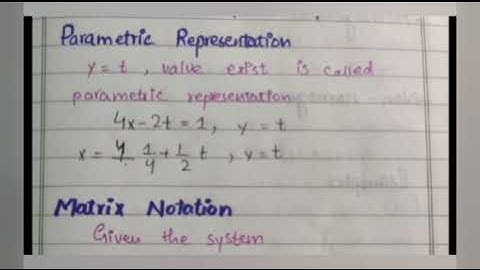 Parametric Representation
y = t , value exist is called
parametric representation
4x-2t = 1, y = t
x = 1/4 + 1/2 t , y = t
Matrix Notation
Given the system